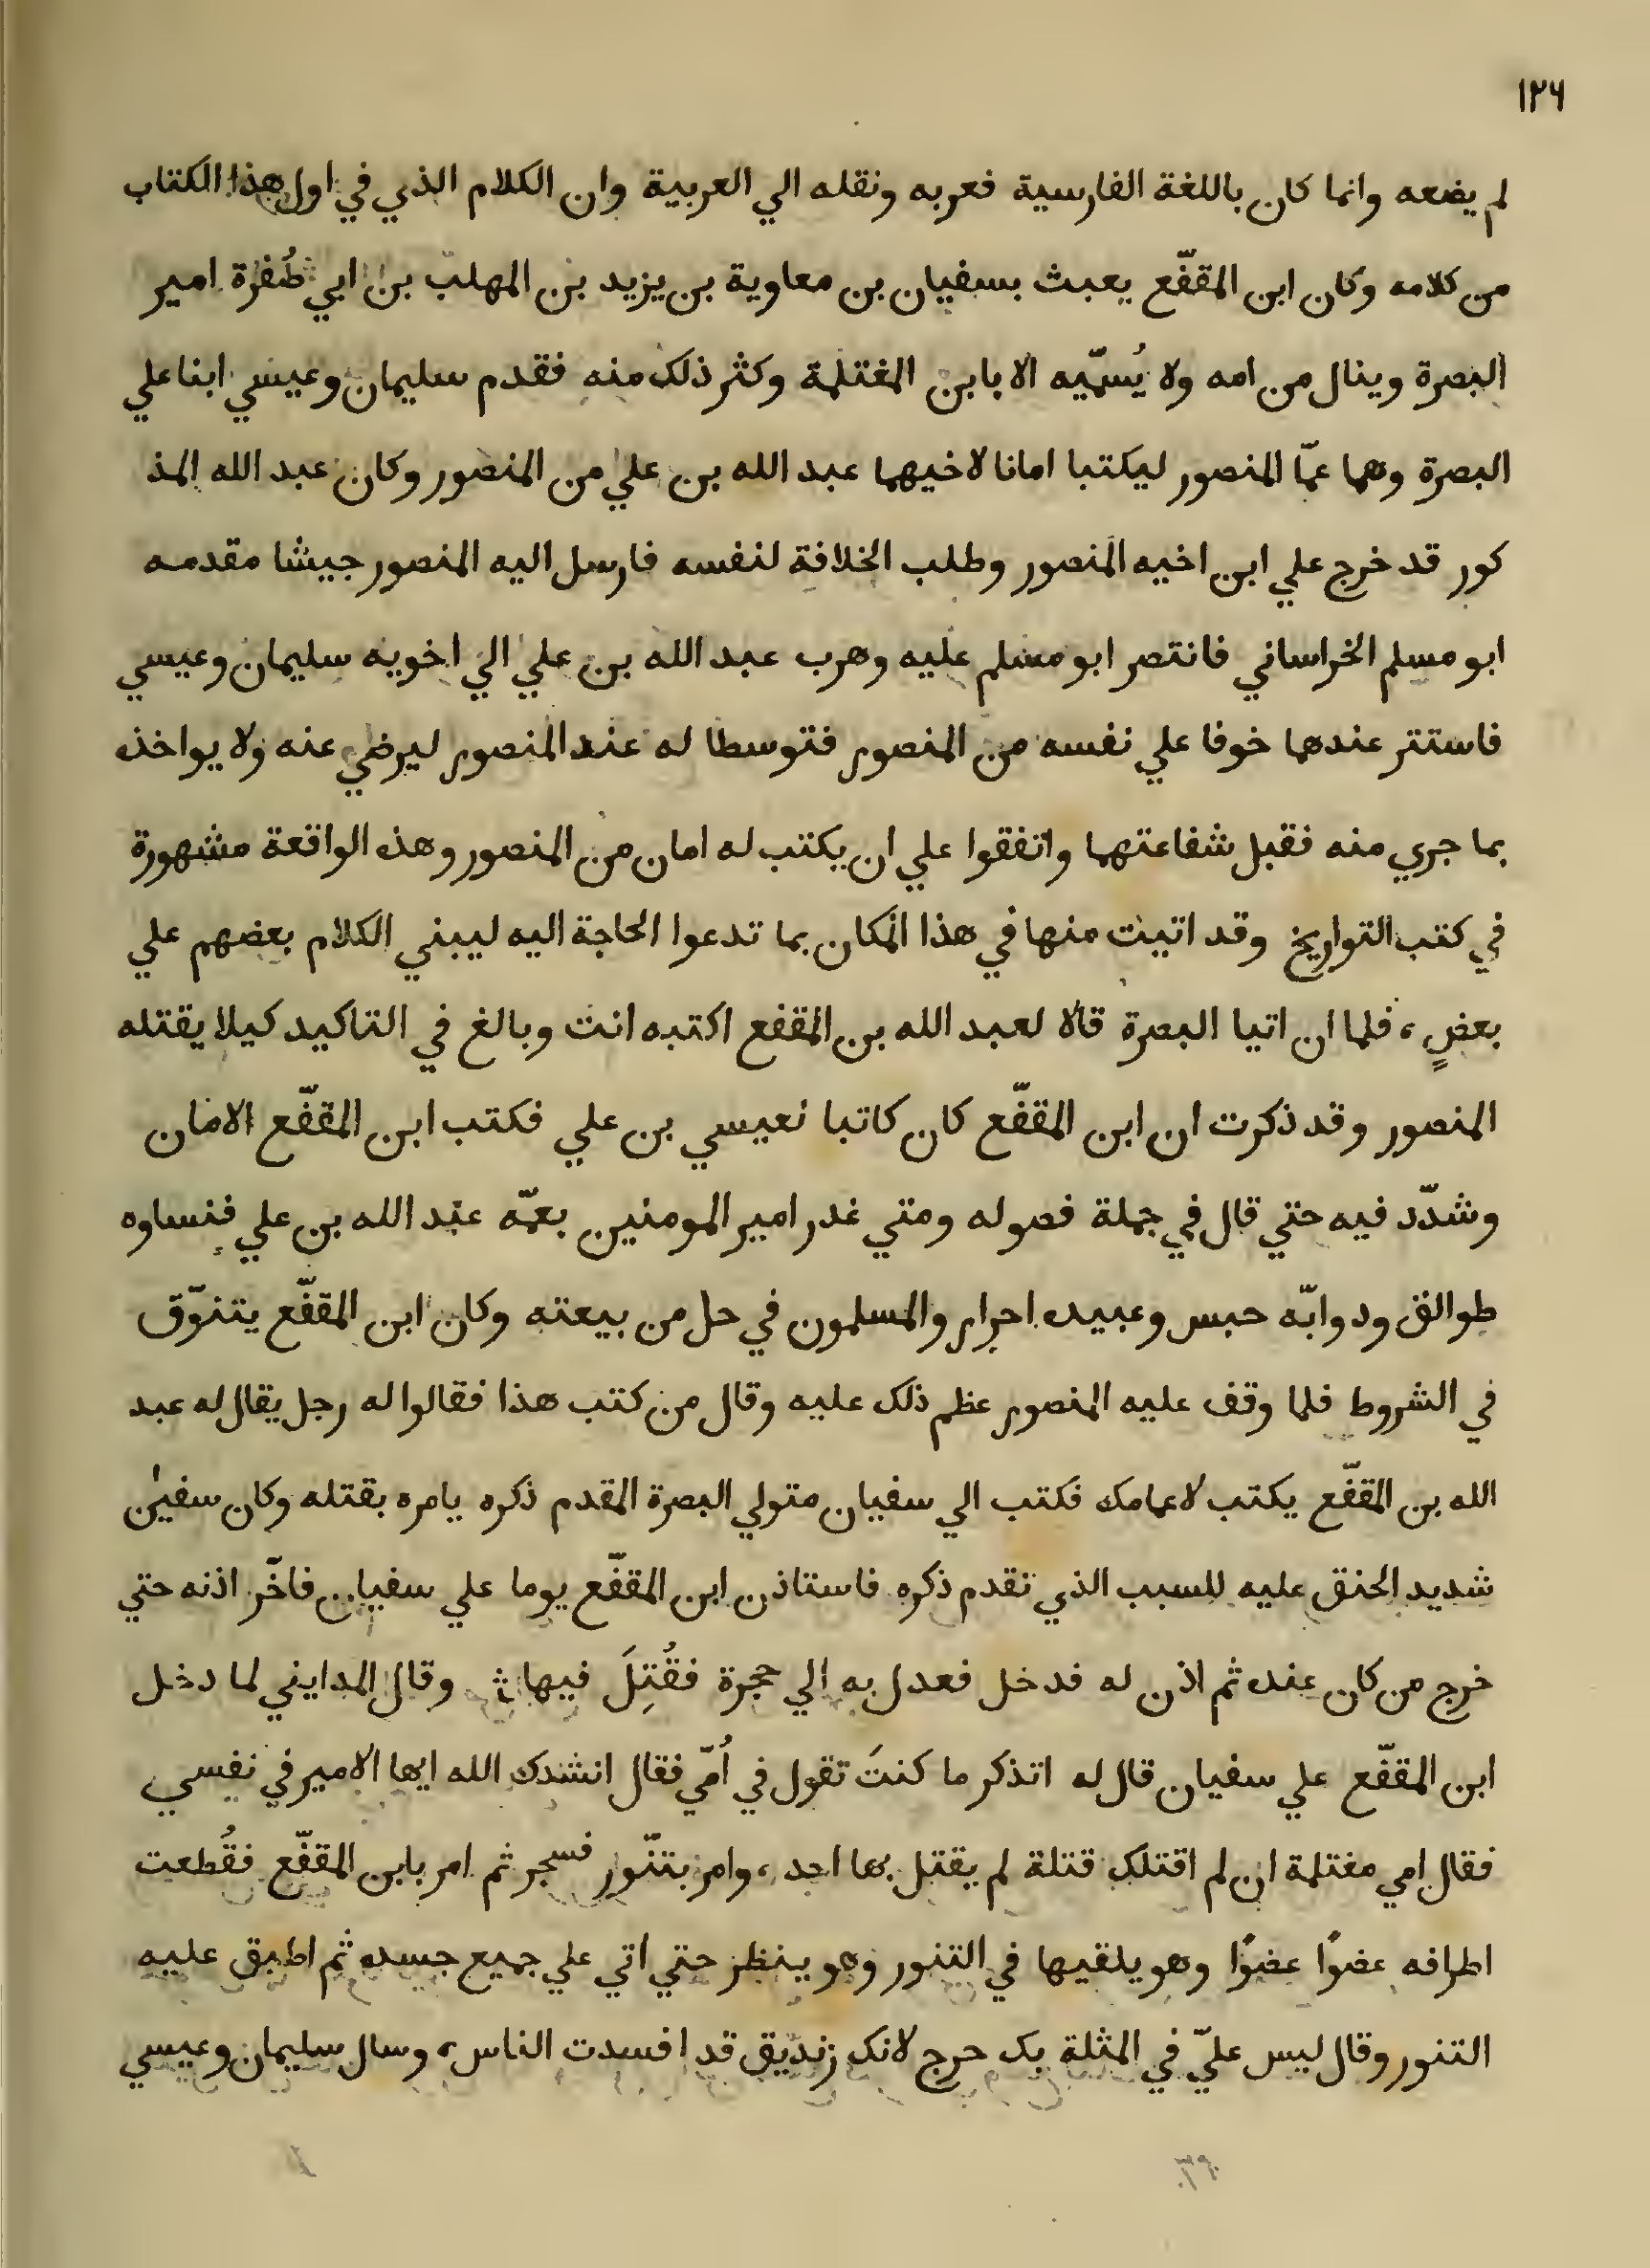 ١٢٦
لم يضعه وانما كان باللغة الفارسية فعربه ونقله الي العربية وان الكلام الذي في اول هذا الكتاب
من كلامه وكان ابن المقفّع يعبث بسفيان بن معاوية بن يزيد بن المهلب بن ابي طُفرة امير
البصرة وينال من امه ولا يُسمّيه الا بابن المغتلمة وكثر ذلك منه فقدم سليمان وعيسي ابنا علي
البصرة وهما عمّا المنصور ليكتبا امانا لاخيهما عبد الله بن علي من المنصور وكان عبد الله المذ
كور قد خرج علي ابن اخيه المنصور وطلب الخلافة لنفسه فارسل اليه المنصور جيشا مقدمه
ابو مسلم الخراساني فانتصر ابو مسلم عليه وهرب عبد الله بن علي الي اخويه سليمان وعيسي
فاستتر عندهما خوفا علي نفسه من المنصور فتوسطا له عند المنصور ليرضي عنه ولا يواخذه
بما جري منه فقبل شفاعتهما واتفقوا علي ان يكتب له امان من المنصور وهذه الواقعة مشهورة
في كتب التواريخ وقد اتيت منها في هذا المكان بما تدعوا الحاجة اليه ليبني الكلام بعضهم علي
بعضٍ، فلما ان اتيا البصرة قالا لعبد الله بن المقفع اكتبه انت وبالغ في التاكيد كيلا يقتله
المنصور وقد ذكرت ان ابن المقفّع كان كاتبا نعيسي بن علي فكتب ابن المقفّع الامان
وشدّد فيه حتي قال في جملة فصوله ومتي غدر امير المومنين بعمّه عبد الله بن علي فنساوه
طوالق ودوابّه حبس وعبيده احرار والمسلمون في حل من بيعته وكان ابن المقفّع يتنوّق
في الشروط فلما وقف عليه المنصور عظم ذلك عليه وقال من كتب هذا فقالوا له رجل يقال له عبد
الله بن المقفّع يكتب لاعمامك فكتب الي سفيان متولي البصرة المقدم ذكره يامره بقتله وكان سفيٰن
شديد الحنق عليه للسبب الذي تقدم ذكره فاستاذن ابن المقفّع يوما علي سفيان فاخّر اذنه حتي
خرج من كان عنده ثم اذن له فدخل فعدل به الي حجرة فقُتِلَ فيها وقال المدايني لما دخل
ابن المقفّع علي سفيان قال له اتذكر ما كنتَ تقول في اُمّي فقال انشدك الله ايها الامير في نفسي
فقال امي مغتلمة ان لم اقتلك قتلة لم يقتل بها احد، وامر بتنّور فسجر ثم امر بابن المقفّع فقُطعت
اطرافه عضوًا عضوًا وهو يلقيها في التنور وهو ينظر حتي اتي علي جميع جسده ثم اطبق عليه
التنور وقال ليس عليّ في المثلة بك حرج لانك زنديق قد افسدت الناس، وسال سليمان وعيسي